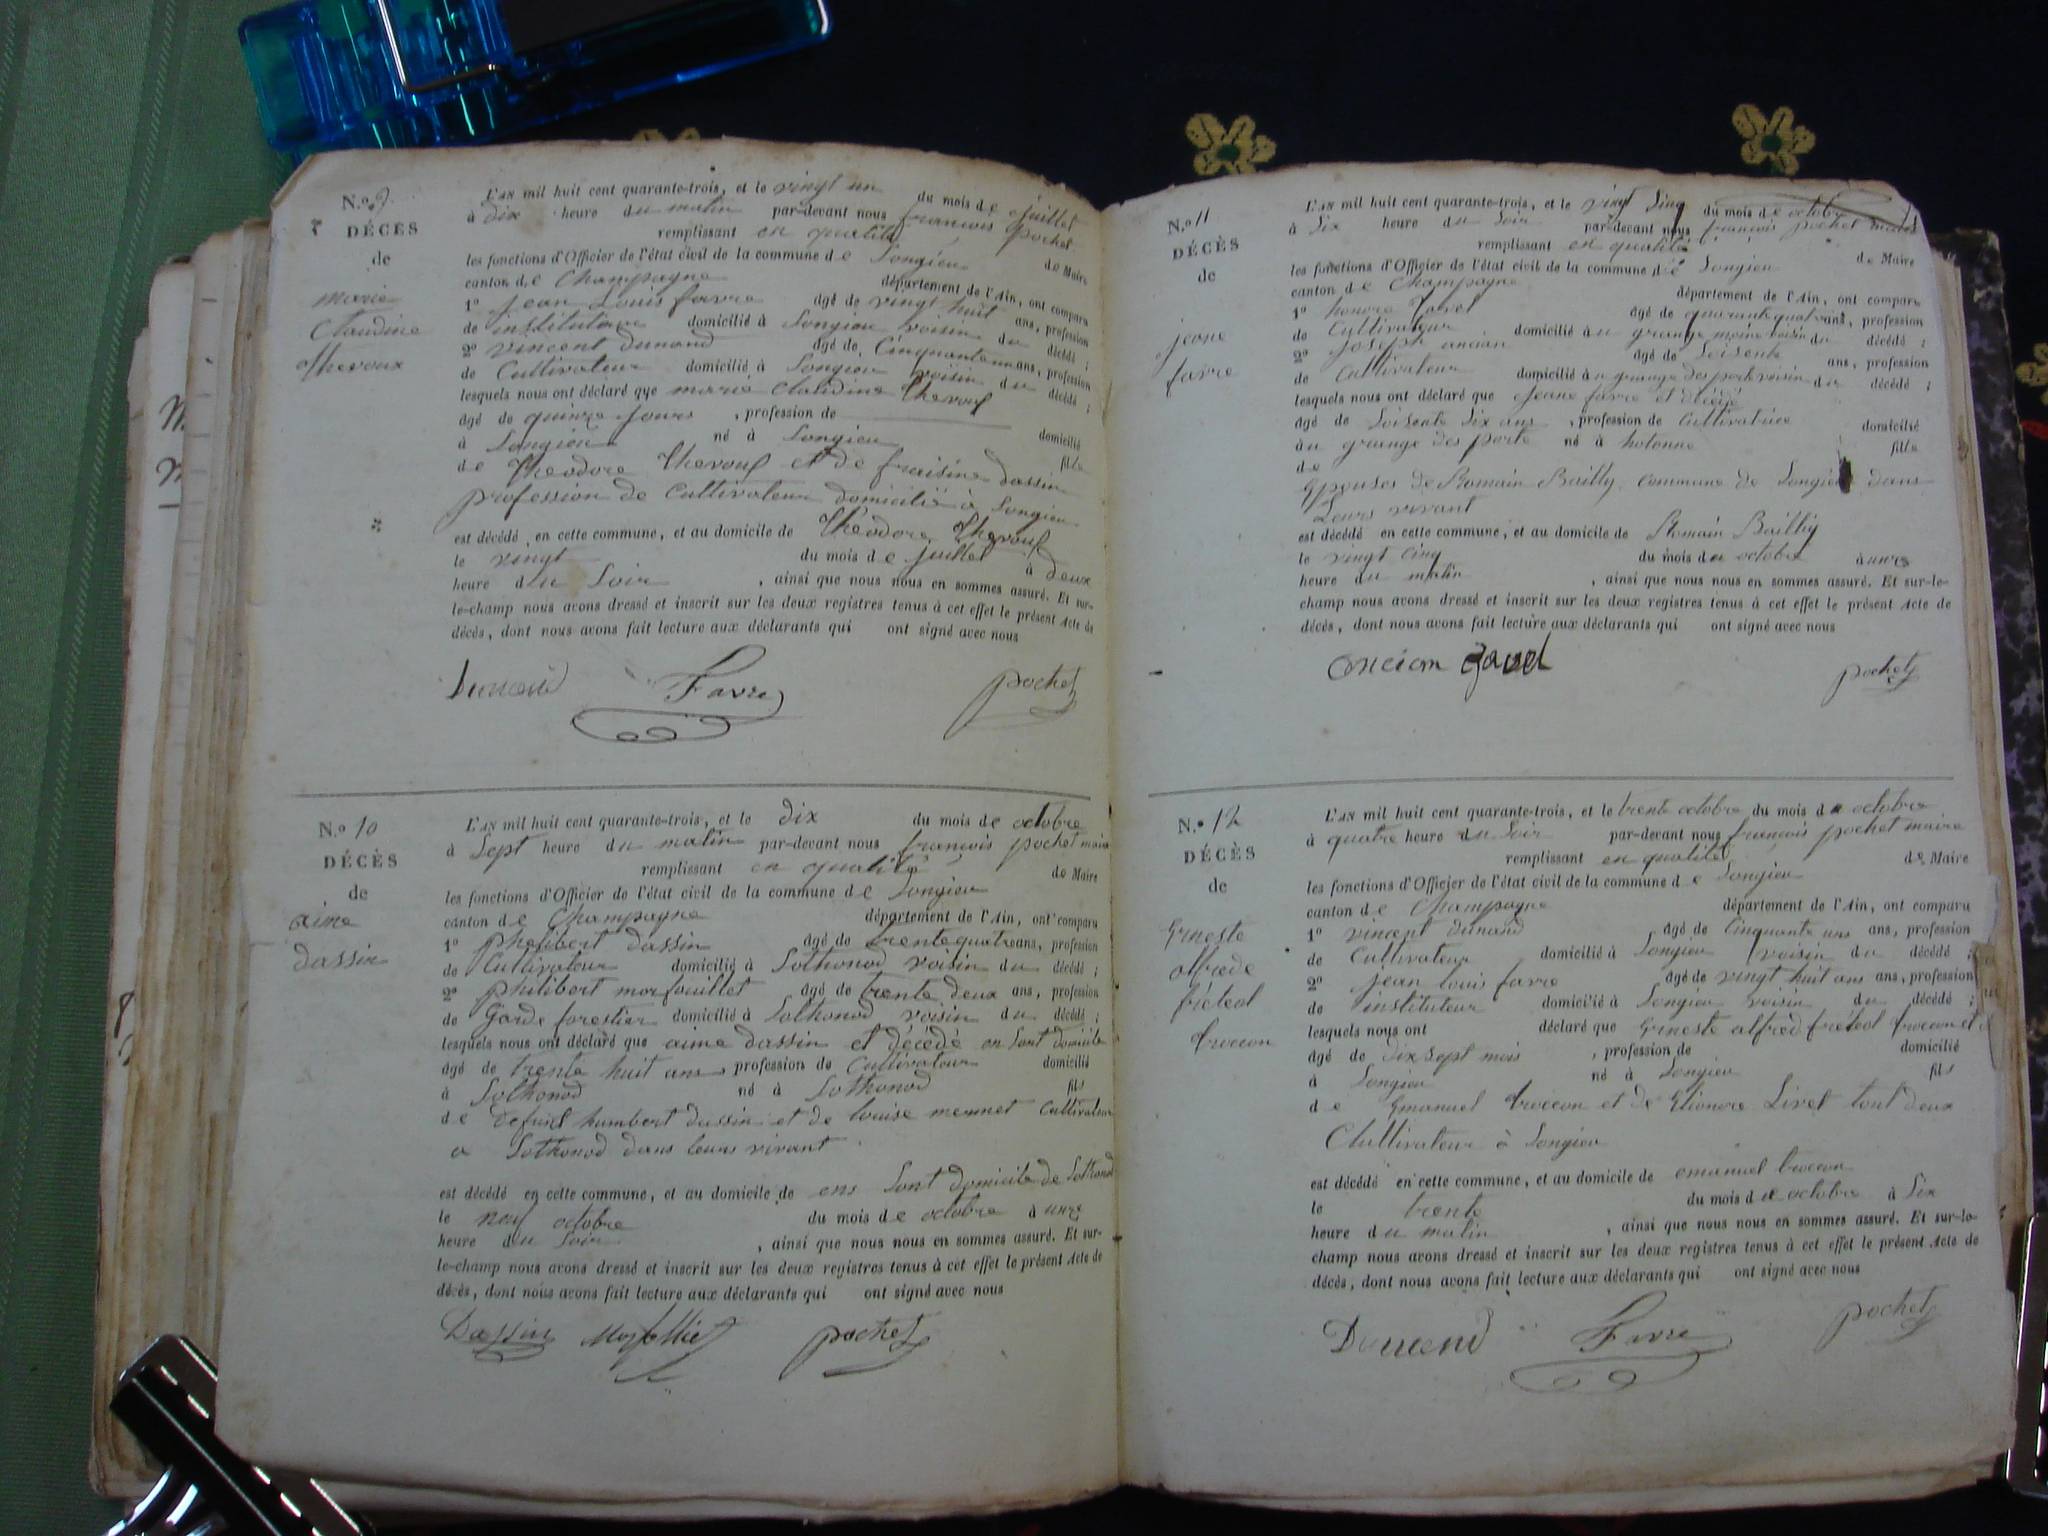 N.º 9.
DÉCÈS
de
marie
Claudine
thevoux
L'AN mil huit cent quarante-trois, et le vingt un du mois de juillet
à dix heure du matin par-devant nous francois pochet
remplissant en qualité de Maire
les fonctions d'Officier de l'état civil de la commune de Songieu
canton de Champagne département de l'Ain, ont comparu
1º jean Louis favre âgé de vingt huit ans, profession
de instituteur domicilié à Songieu voisin du décédé ;
2º vincent dunand âgé de Cinquante un ans, profession
de Cultivateur domicilié à Songieu voisin du décédé ;
lesquels nous ont déclaré que marie Claudine thevoux
âgé de quinze jours , profession de domicilié
à Songieu né à Songieu fille
de theodore thevoux et de fraisine dassin
profession de Cultivateur domicilié à Songieu
est décédé en cette commune, et au domicile de théodore thevoux
le vingt du mois de juillet à deux
heure du Soir , ainsi que nous nous en sommes assuré. Et sur-
le-champ nous avons dressé et inscrit sur les deux registres tenus à cet effet le présent Acte de
décès, dont nous avons fait lecture aux déclarants qui ont signé avec nous
Dunand Favre pochet
N.º 10
DÉCÈS
de
aime
dassin
L'AN mil huit cent quarante-trois, et le dix du mois de octobre
à Sept heure du matin par-devant nous francois pochet maire
remplissant en qualité de Maire
les fonctions d'Officier de l'état civil de la commune de Songieu
canton de Champagne département de l'Ain, ont comparu
1º philibert dassin âgé de trente quatre ans, profession
de Cultivateur domicilié à Sothonod voisin du décédé ;
2º philibert morfouillet âgé de trente deux ans, profession
de Garde forestier domicilié à Sothonod voisin du décédé ;
lesquels nous ont déclaré que aime dassin et décédé en Sont domicile
âgé de trente huit ans profession de Cultivateur domicilié
à Sothonod né à Sothonod fils
de defunt humbert dassin et de louise mennet Cultivateur
a Sothonod dans leurs vivant
est décédé en cette commune, et au domicile de ens Sont domicile de Sothonod
le neuf octobre du mois de octobre à unze
heure du Soir , ainsi que nous nous en sommes assuré. Et sur-
le-champ nous avons dressé et inscrit sur les deux registres tenus à cet effet le présent Acte de
décès, dont nous avons fait lecture aux déclarants qui ont signé avec nous
Dassin pochet
N.º 11
DÉCÈS
de
jeane
favre
L'AN mil huit cent quarante-trois, et le vingt Sinq du mois de octobre
à Six heure du Soir par-devant nous francois pochet maire
remplissant en qualité de Maire
les fonctions d'Officier de l'état civil de la commune de Songieu
canton de Champagne département de l'Ain, ont comparu
1º honore âgé de quarante quat ans, profession
de Cultivateur domicilié à grange voisin du décédé ;
2º joseph ancian âgé de Soisente ans, profession
de Cultivateur domicilié à grange des porte voisin du décédé ;
lesquels nous ont déclaré que jeane favre et décédé
âgé de Soisente Six ans , profession de Cultivatrice domicilié
au grange des porte né à hotonne fille
de
Epouses de Romain Bailly commune de Songieu dans
Leurs vivant
est décédé en cette commune, et au domicile de Romain Bailly
le vingt cinq du mois de octobre à unze
heure du matin , ainsi que nous nous en sommes assuré. Et sur-le-
champ nous avons dressé et inscrit sur les deux registres tenus à cet effet le présent Acte de
décès, dont nous avons fait lecture aux déclarants qui ont signé avec nous
pochet
N.º 12
DÉCÈS
de
Erneste
alfrede
fréteol
trocon
L'AN mil huit cent quarante-trois, et le trente octobre du mois de octobre
à quatre heure du Soir par-devant nous francois pochet maire
remplissant en qualité de Maire
les fonctions d'Officier de l'état civil de la commune de Songieu
canton de Champagne département de l'Ain, ont comparu
1º vincent dunand âgé de Cinquante uns ans, profession
de Cultivateur domicilié à Songieu voisin du décédé ;
2º jean louis favre âgé de vingt huit ans ans, profession
de instituteur domicilié à Songieu voisin du décédé ;
lesquels nous ont déclaré que Erneste alfred fréteol trocon et
âgé de dix Sept mois , profession de domicilié
à Songieu né à Songieu fils
de Emanuel trocon et de Elionore Livet tout deux
Cultivateur à Songieu
est décédé en cette commune, et au domicile de emanuel trocon
le trente du mois de octobre à Six
heure du matin , ainsi que nous nous en sommes assuré. Et sur-le-
champ nous avons dressé et inscrit sur les deux registres tenus à cet effet le présent Acte de
décès, dont nous avons fait lecture aux déclarants qui ont signé avec nous
Dunand Favre pochet